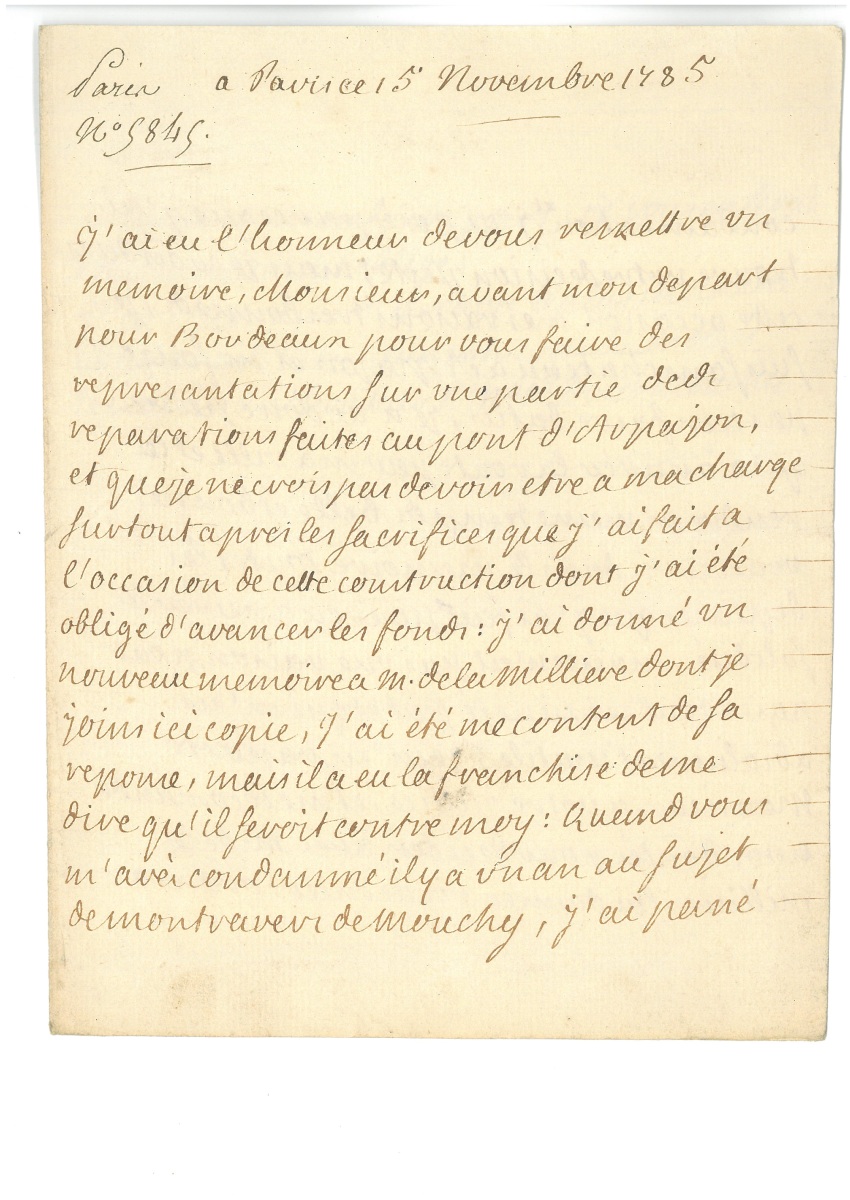 Paris a Paris ce 15 Novembre 1785
N° 5845.
j'ai eu l'honneur de vous remettre un
memoire, Monsieur, avant mon depart
pour Bordeaux pour vous faire des
represantations sur une partie des
reparations faites au pont d'Arpajon,
et que je ne crois pas devoir etre a ma charge
surtout apres les sacrifices que j'ai fait a
l'occasion de cette construction dont j'ai été
obligé d'avancer les fonds : j'ai donné un
nouveau memoire a M. de la Milliere dont je
joins ici copie, j'ai été mecontent de sa
reponse, mais il a eu la franchise de me
dire qu'il seroit contre moy : Quand vous
m'avés condamné il y a un an au sujet
de mon travers de Mouchy, j'ai pensé